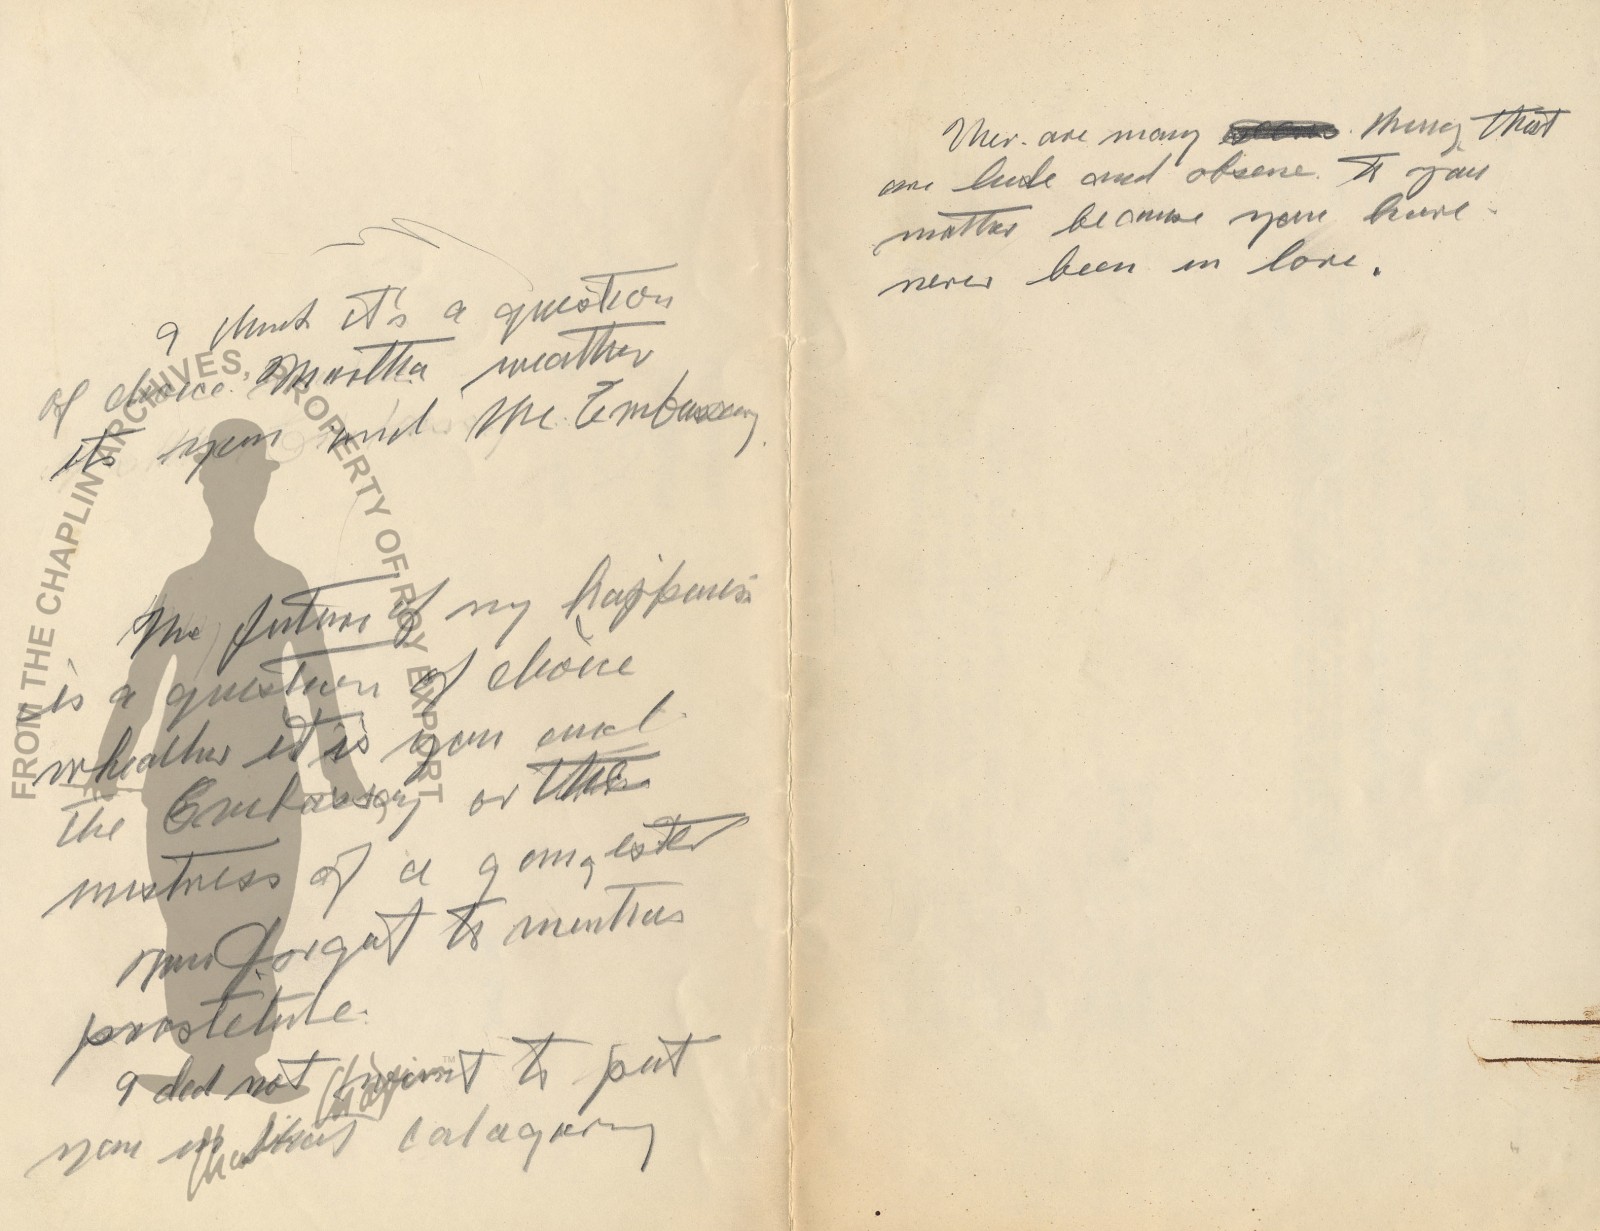 I think it's a question
of choice Martha weather
its you and the Embassy.
The future of my happiness
is a question of choice
wheather it is you and
the Embassy or the
mistress of a gangester
you forgot to mention
prostetute.
I did not want to put
you in that catagory
Ther are many things that
are lude and obsene to you
matter because you have
never been in love.
FROM THE CHAPLIN ARCHIVES, PROPERTY OF ROY EXPORT